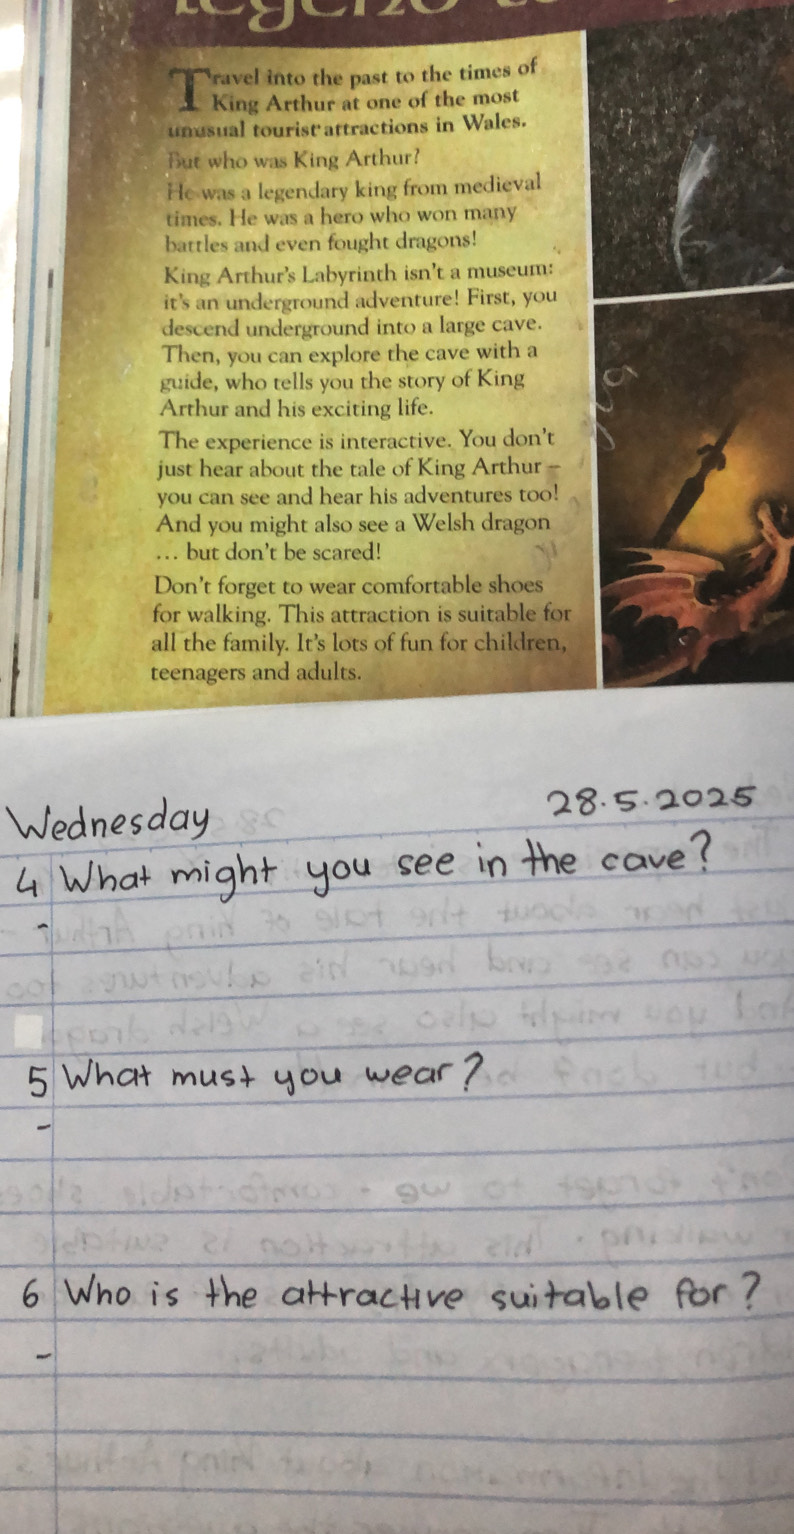 Travel into the past to the times of
King Arthur at one of the most
unusual tourist attractions in Wales.
But who was King Arthur?
He was a legendary king from medieval
times. He was a hero who won many
battles and even fought dragons!
King Arthur's Labyrinth isn't a museum:
it's an underground adventure! First, you
descend underground into a large cave.
Then, you can explore the cave with a
guide, who tells you the story of King
Arthur and his exciting life.
The experience is interactive. You don't
just hear about the tale of King Arthur –
you can see and hear his adventures too!
And you might also see a Welsh dragon
... but don't be scared!
Don't forget to wear comfortable shoes
for walking. This attraction is suitable for
all the family. It's lots of fun for children,
teenagers and adults.
Wednesday 28.5.2025
4 What might you see in the cave?
-
5 What must you wear?
-
6 Who is the attractive suitable for?
-